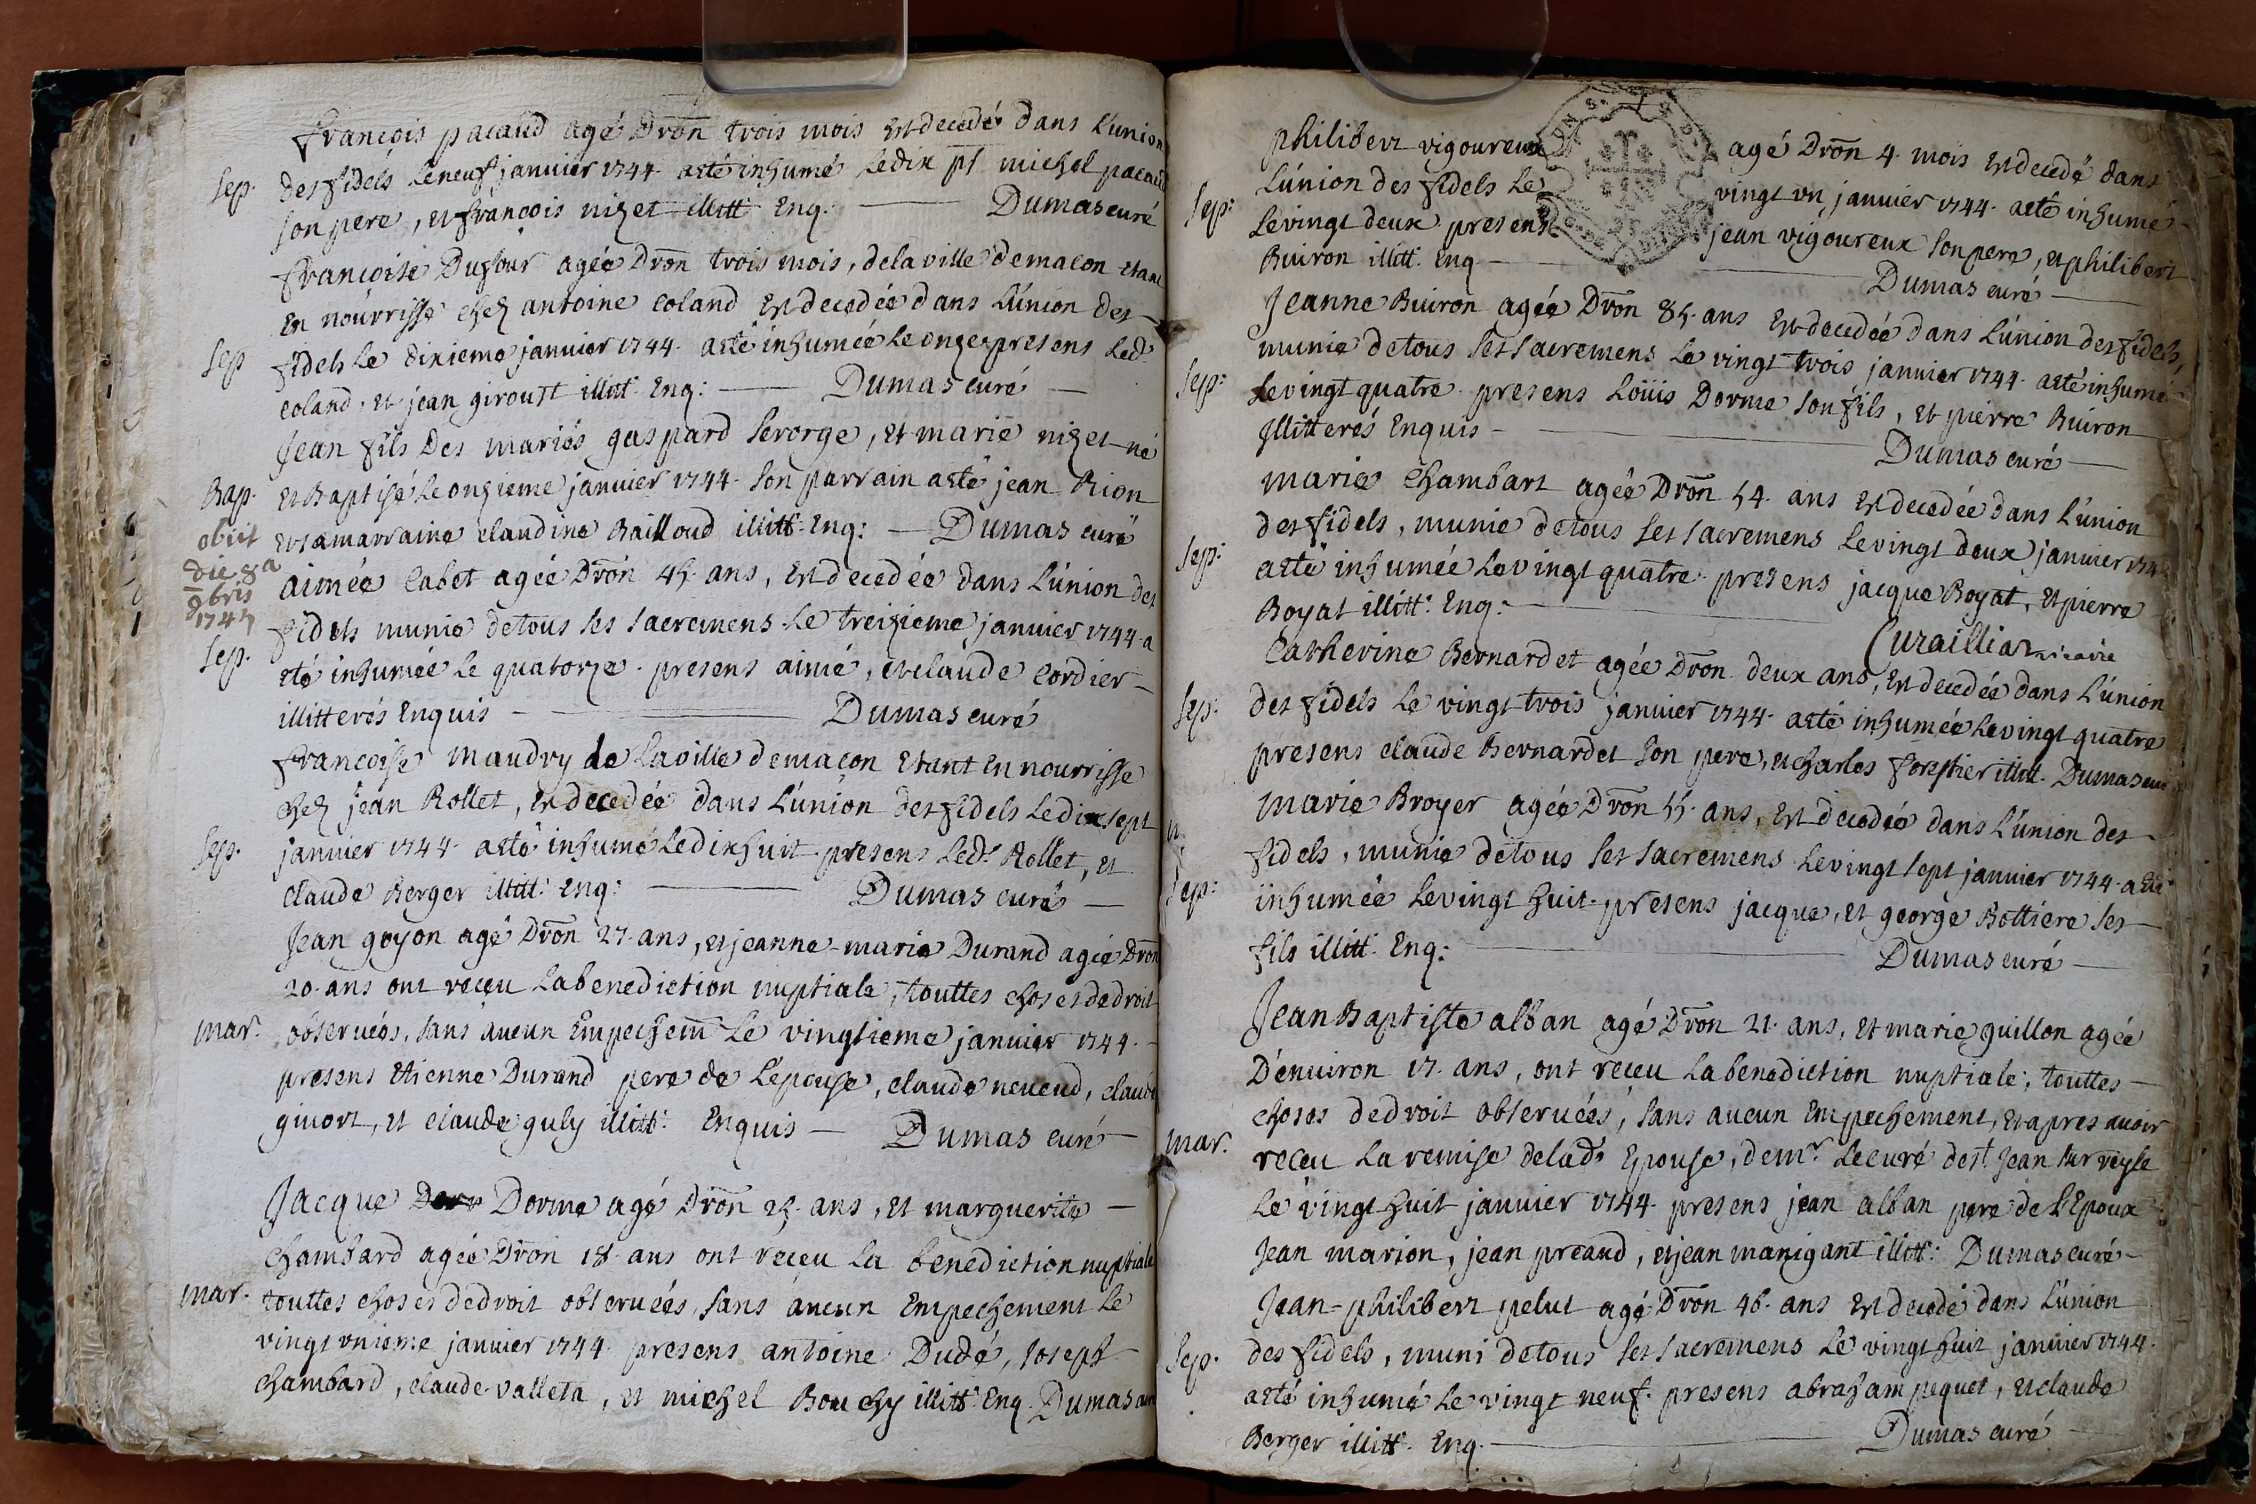 françois pacaud agé Dron trois mois est decedé dans L'union
Sep. des fidels Le neuf janvier 1744. a eté inhumé Le dix pt michel pacaud
son pere, et françois nizet illitt. Enq: Dumas curé
françoise Dufour agée Dron trois mois, de la ville de macon etant
En nourrisse chez antoine coland est decedée dans L'union des
Sep fidels Le dixieme janvier 1744. a eté inhumée Le onze presens Led.
coland, et jean giroust illitt. Enq: Dumas curé
Jean fils Des mariés gaspard Serorge, et marie nizet né
Bap. et Baptisé Le onzieme janvier 1744. Son parrain a eté jean Rion
obiit et sa marraine claudine Bailloud illitt. Enq: Dumas curé
die 8a
9bris
1745
aimée Cabet agée Dron 45. ans, est decedée dans L'union des
fidels munie de tous ses sacremens Le treizieme janvier 1744. a
Sep. eté inhumée Le quatorze. presens aimé, et claude Cordier
illitterés Enquis Dumas curé
françoise maudry de La ville de macon etant En nourrisse
chez jean Rollet, est decedée dans L'union des fidels Le dix sept
Sep. janvier 1744. a eté inhumé Le dix huit presens Led. Rollet, et
claude Berger illitt. Enq: Dumas curé
Jean goyon agé Dron 27. ans, et jeanne-marie Durand agée Dron
20. ans ont receu La benediction nuptiale, touttes choses de droit
mar. observées, sans aucun Empechem Le vingtieme janvier 1744.
presens Etienne Durand pere de L'epouse, claude neveud, claude
givort, et claude guly illitt: Enquis Dumas curé
Jacque Dorme agé Dron 25. ans, et marguerite
chambard agée Dron 18. ans ont receu La benediction nuptiale
mar. touttes choses de droit observées, sans aucun Empechement Le
vingt unieme janvier 1744. presens antoine Dudé, joseph
chambard, claude valleta, et michel Bouchy illitt. Enq. Dumas
philibert vigoureux agé Dron 4. mois est decedé dans
L'union des fidels Le vingt un janvier 1744. a eté inhumé
Sep: Le vingt deux presens jean vigoureux son pere, et philibert
Buiron illitt. Enq Dumas curé
Jeanne Buiron agée Dron 85. ans est decedée dans L'union des fidels,
munie de tous ses sacremens Le vingt trois janvier 1744. a eté inhumé
Sep: Le vingt quatre presens Loüis Dorme son fils, et pierre Buiron
Illitterés Enquis Dumas curé
marie Chambart agée Dron 54. ans est decedée dans L'union
des fidels, munie de tous ses sacremens Le vingt deux janvier 174
Sep: a eté inhumée Le vingt quatre presens jacque Boyat, et pierre
Boyat illitt: Enq: Curaillia vicaire
Catherine Bernardet agée Dron deux ans, est decedée dans L'union
Sep: des fidels Le vingt trois janvier 1744. a eté inhumée Le vingt quatre
presens claude Bernardet son pere, et charles forestier illitt. Dumas
marie Broyer agée Dron 55. ans, est decedée dans L'union des
fidels, munie de tous ses sacremens Le vingt sept janvier 1744. a eté
Sep: inhumée Le vingt huit presens jacque, et george Bottiere ses
fils illitt. Enq: Dumas curé
Jean Baptiste alban agé Dron 21. ans, et marie guillon agée
D'environ 17. ans, ont receu La benediction nuptiale, touttes
choses de droit observées, sans aucun Empechement, et apres avoir
mar. receu La remise de lad. Epouse, de mr. Le curé de st. jean sur reysse
Le vingt huit janvier 1744. presens jean alban pere de L'Epoux
Jean marion, jean preaud, et jean manigant illitt: Dumas curé
Jean-philibert pelut agé Dron 46. ans est decedé dans L'union
Sep. des fidels, muni de tous ses sacremens Le vingt huit janvier 1744.
a eté inhumé Le vingt neuf. presens abraham pequet, et claude
Berger illitt. Enq. Dumas curé